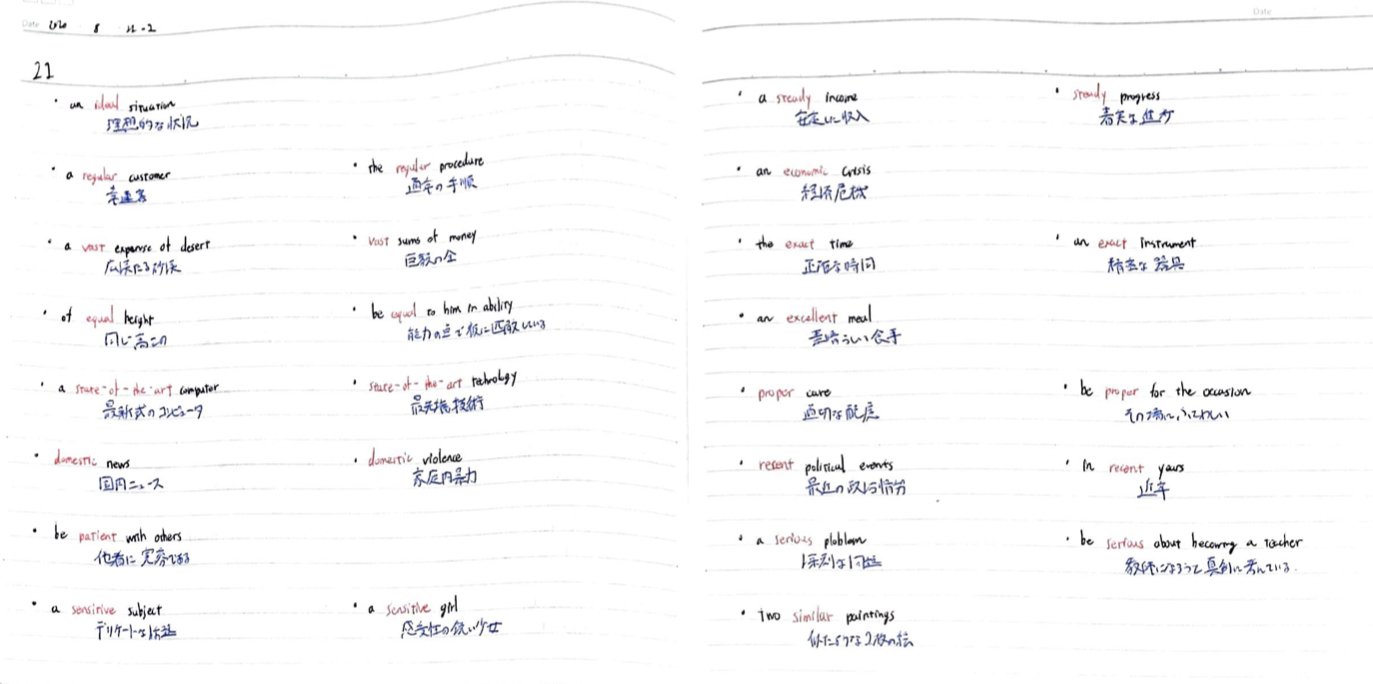 Date
8
21
Date
・an ideal situation
理想的な状況
・a regular customer
常連客
・the regular procedure
通常の手順
・a vast expanse of desert
広漠たる砂漠
・vast sums of money
巨額の金
・of equal height
同じ高さの
・be equal to him in ability
能力の点で彼に匹敵している
・a state-of-the-art computer
最新式のコンピュータ
・state-of-the-art technology
最先端技術
・domestic news
国内ニュース
・domestic violence
家庭内暴力
・be patient with others
他者に寛容である
・a sensitive subject
デリケートな話題
・a sensitive girl
感受性の鋭い少女
・a steady income
安定した収入
・steady progress
着実な進歩
・an economic crisis
経済危機
・the exact time
正確な時間
・an exact instrument
精密な器具
・an excellent meal
素晴らしい食事
・proper care
適切な配慮
・be proper for the occasion
その場にふさわしい
・recent political events
最近の政治情勢
・in recent years
近年
・a serious ploblem
深刻な問題
・be serious about becoming a teacher
教師になろうと真剣に考えている
・two similar paintings
似たような2枚の絵